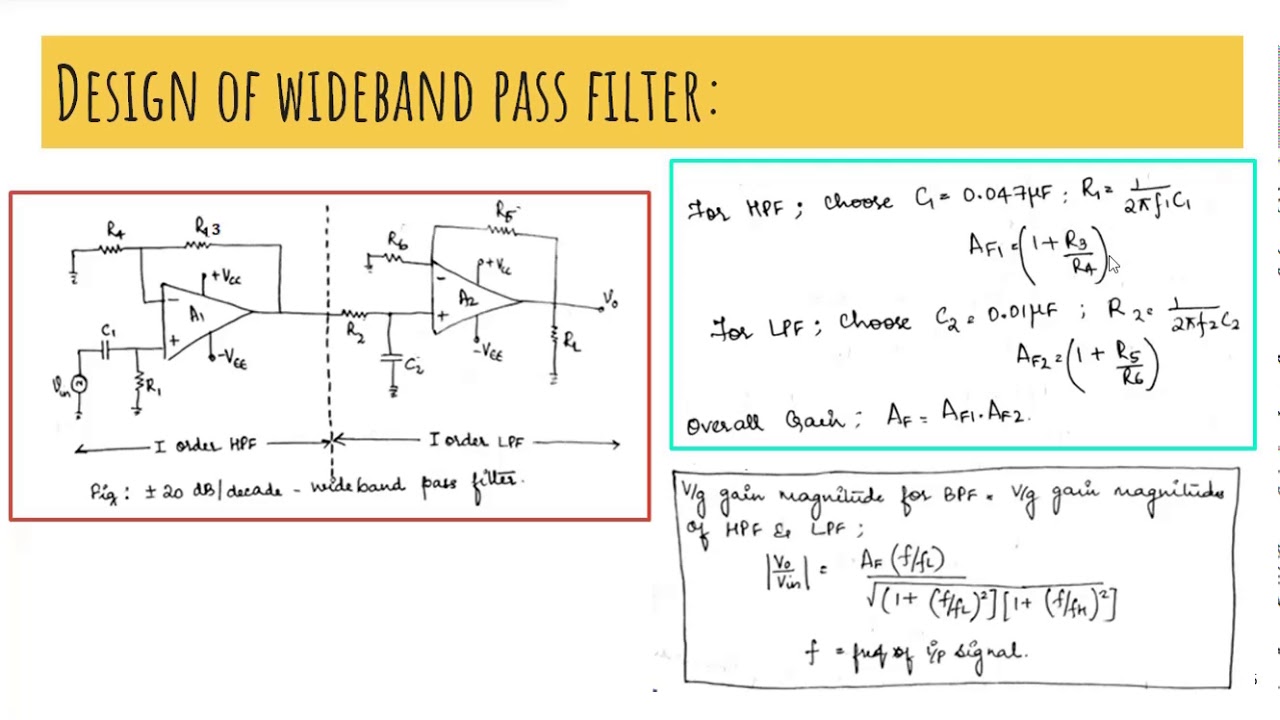 DESIGN OF WIDEBAND PASS FILTER:
R4
R13
+Vcc
A1
-VEE
C1
Vin
R1
R2
C2
R6
R5
+Vcc
A2
-VEE
Vo
RL
I order HPF
I order LPF
Fig: ± 20 dB/decade - wide band pass filter.
For HPF ; choose C1 = 0.047μF ; R1 = 1/2πf1C1
AF1 = (1 + R3/R4)
For LPF ; choose C2 = 0.01μF ; R2 = 1/2πf2C2
AF2 = (1 + R5/R6)
Overall Gain ; AF = AF1 . AF2.
V/g gain magnitude for BPF = V/g gain magnitudes
of HPF & LPF ;
|Vo/Vin| = AF (f/fL) / √(1+ (f/fL)²][1+ (f/fH)²]
f = freq of i/p signal.